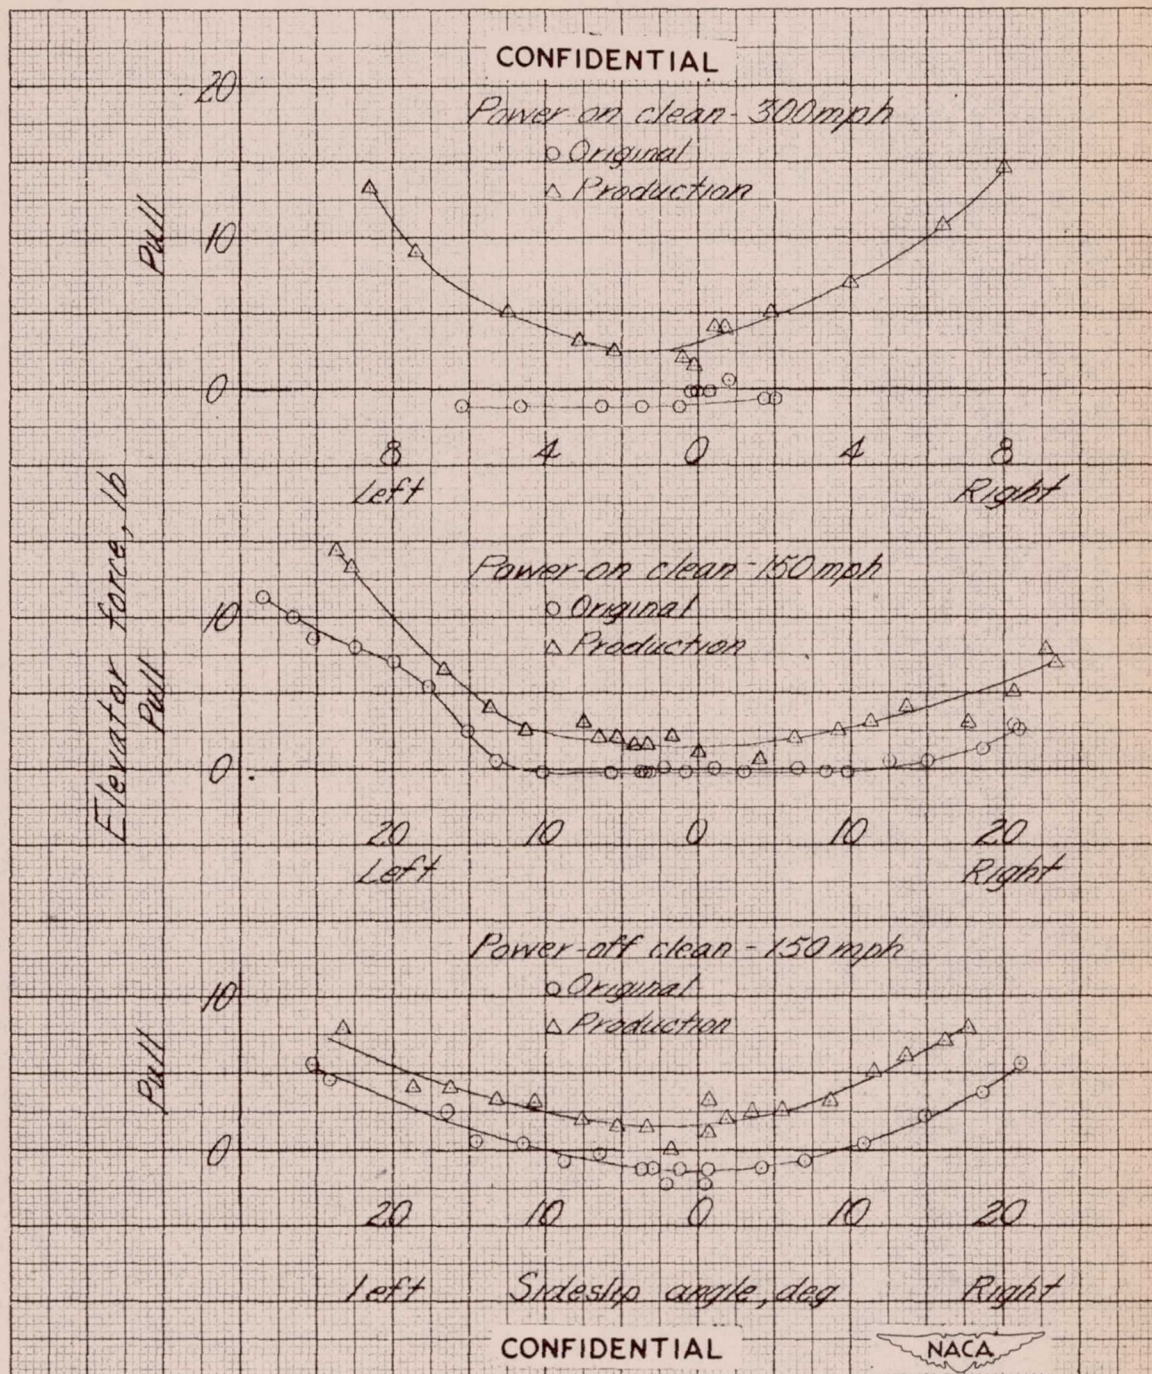 CONFIDENTIAL
20
Power on clean - 300 mph
○ Original
△ Production
Pull
10
0
8 4 0 4 8
Left Right
Elevator force, lb
Power-on clean - 150 mph
○ Original
△ Production
10
Pull
0
20 10 0 10 20
Left Right
Power-off clean - 150 mph
10
○ Original
△ Production
Pull
0
20 10 0 10 20
Left Sideslip angle, deg Right
CONFIDENTIAL
NACA